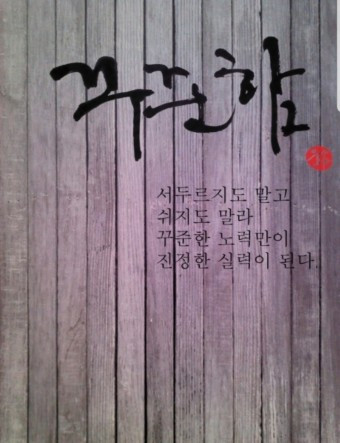 꾸준함
서두르지도 말고
쉬지도 말라
꾸준한 노력만이
진정한 실력이 된다.